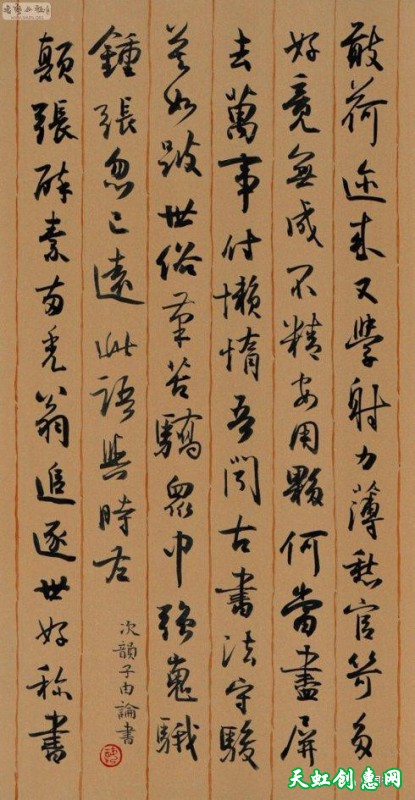 敢荷迩来又學射力薄愁官笴多
好竟無成不精安用夥何當盡屏
去萬事付懶惰吾聞古書法守駿
莫如跛世俗筆苦驕眾中強嵬騀
鍾張忽已遠此語與時左
次韻子由論書
顛張醉素兩禿翁追逐世好稱書
天虹创意网